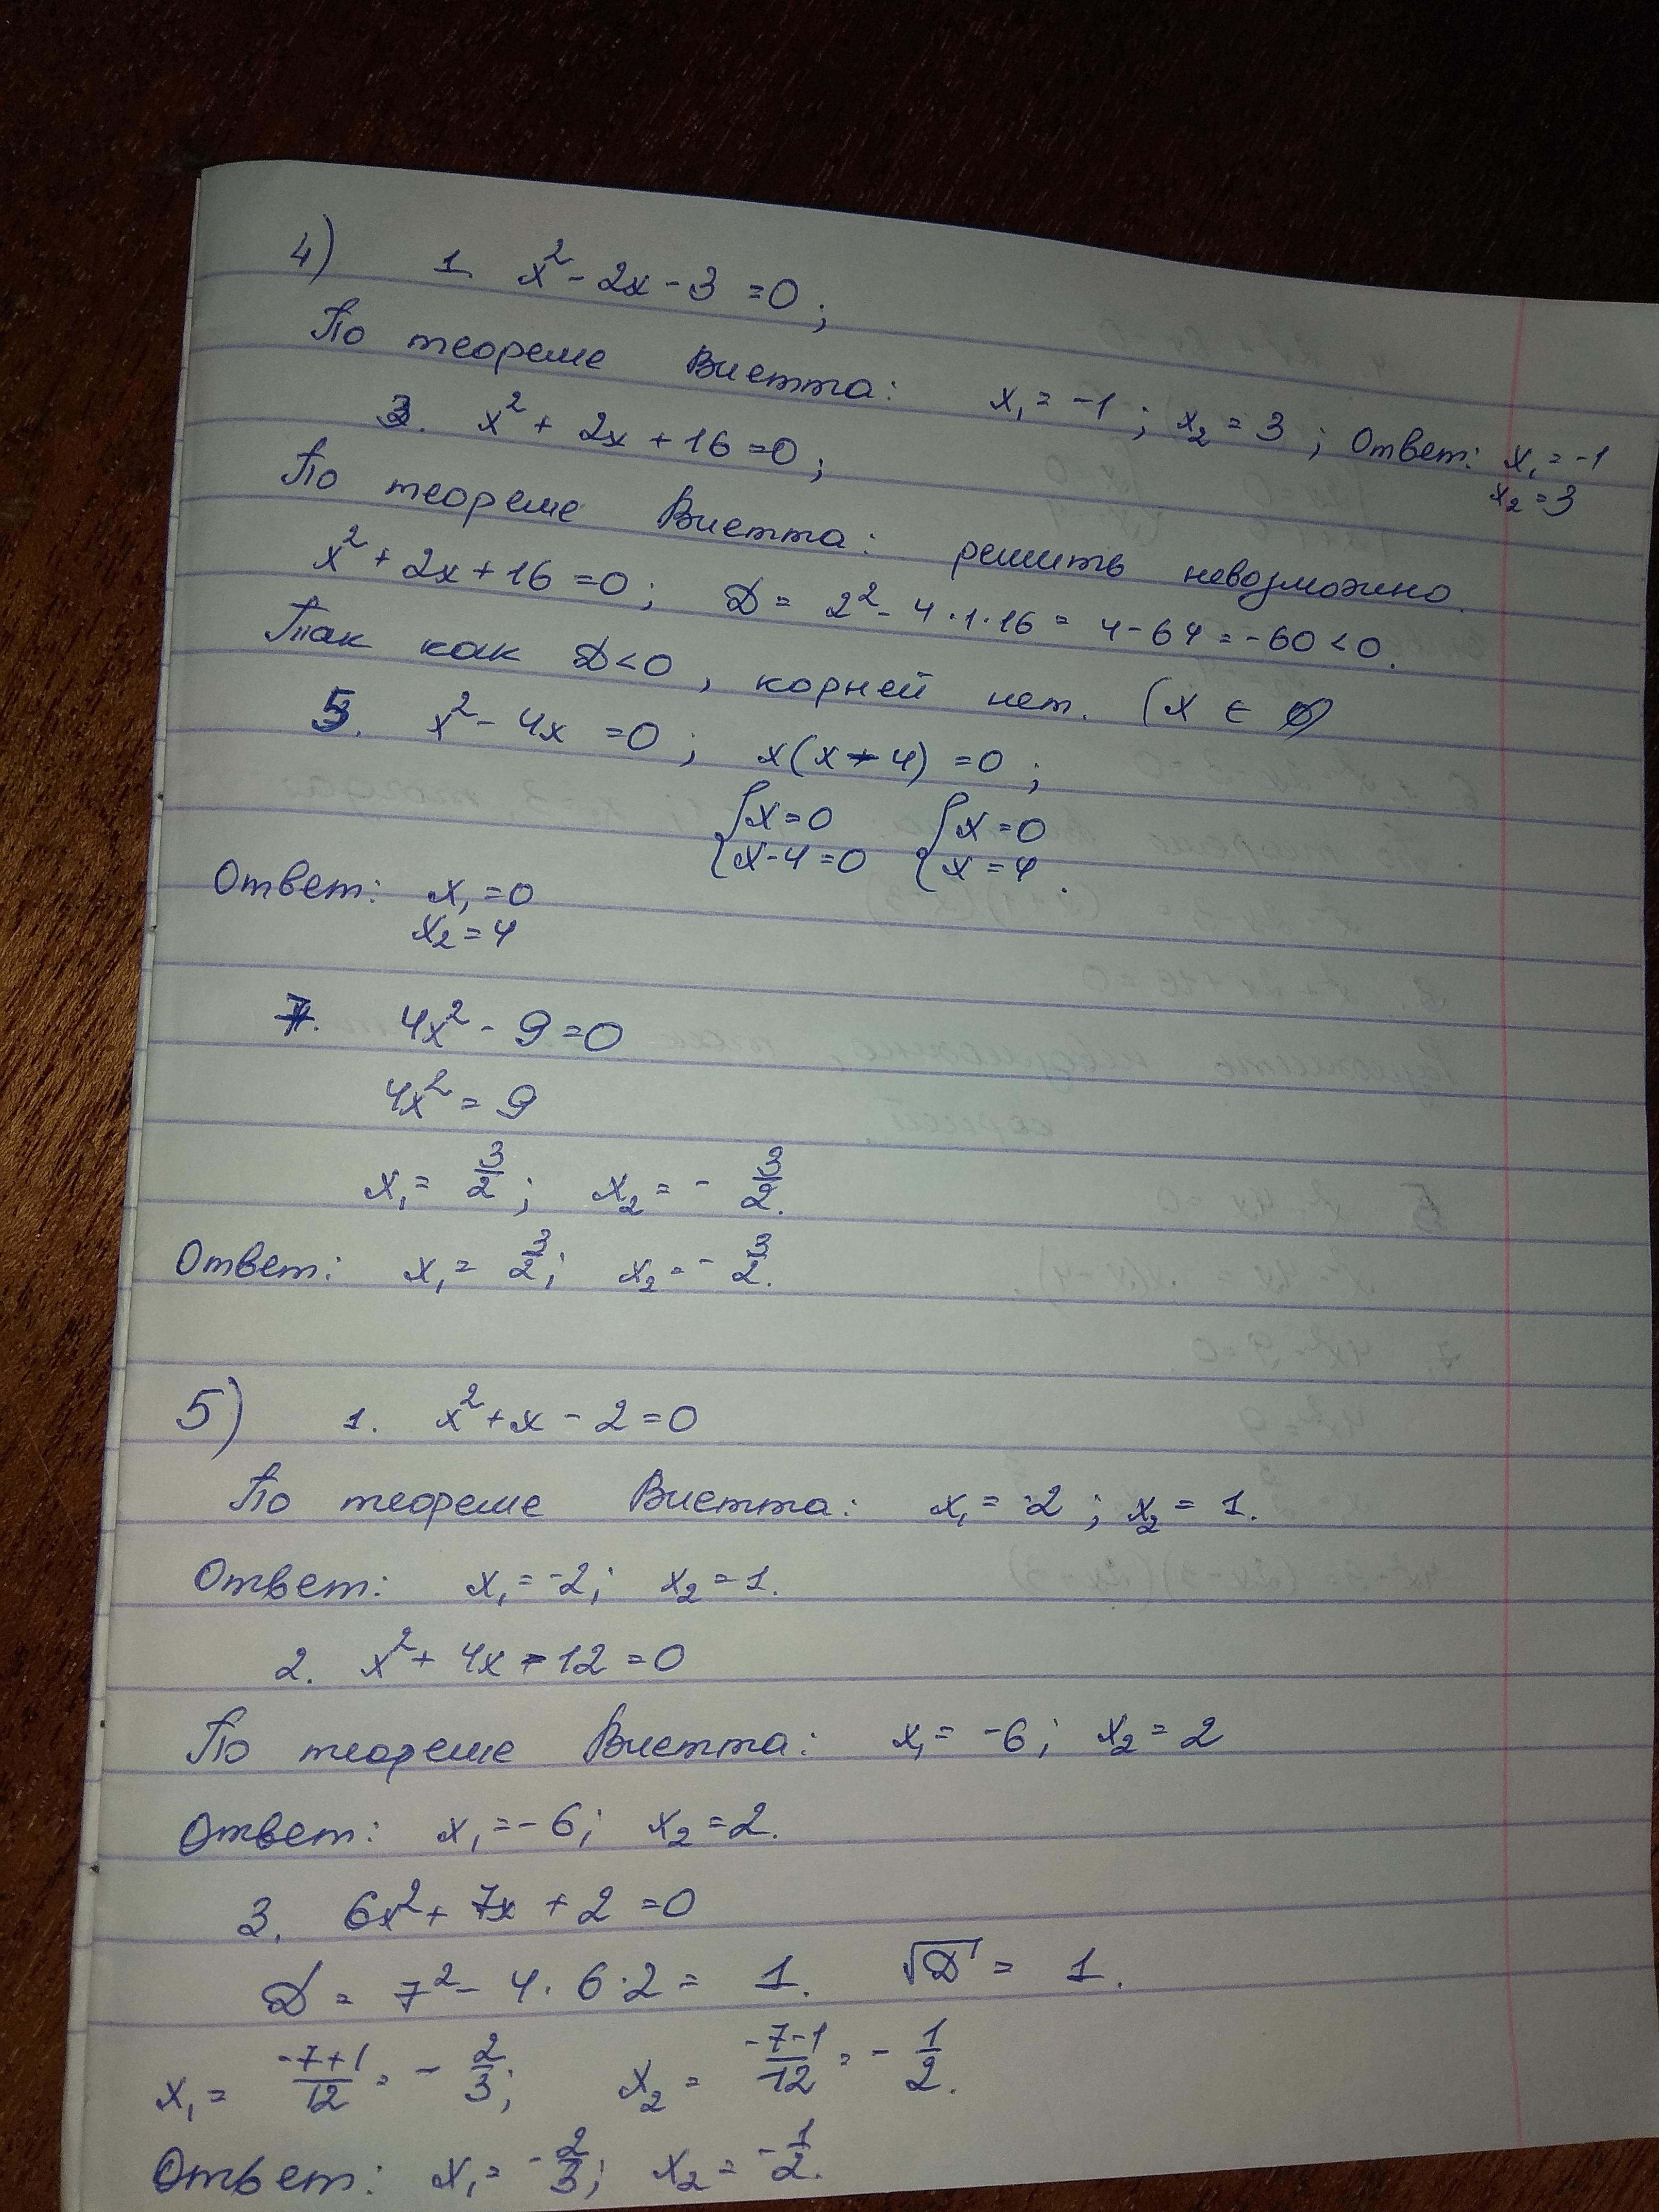 4) 1. x² - 2x - 3 = 0;
По теореме Виетта: x₁ = -1; x₂ = 3; Ответ: x₁ = -1
x₂ = 3
3. x² + 2x + 16 = 0;
По теореме Виетта: решить невозможно.
x² + 2x + 16 = 0; D = 2² - 4·1·16 = 4 - 64 = -60 < 0.
Так как D < 0, корней нет. (x ∈ ∅)
5. x² - 4x = 0; x(x - 4) = 0;
{x = 0 {x = 0
{x - 4 = 0 {x = 4.
Ответ: x₁ = 0
x₂ = 4
7. 4x² - 9 = 0
4x² = 9
x₁ = 3/2; x₂ = - 3/2.
Ответ: x₁ = 3/2; x₂ = - 3/2.
5) 1. x² + x - 2 = 0
По теореме Виетта: x₁ = -2; x₂ = 1.
Ответ: x₁ = -2; x₂ = 1.
2. x² + 4x - 12 = 0
По теореме Виетта: x₁ = -6; x₂ = 2
Ответ: x₁ = -6; x₂ = 2.
3. 6x² + 7x + 2 = 0
D = 7² - 4·6·2 = 1. √D = 1.
x₁ = (-7+1)/12 = - 2/3; x₂ = (-7-1)/12 = - 1/2.
Ответ: x₁ = - 2/3; x₂ = - 1/2.